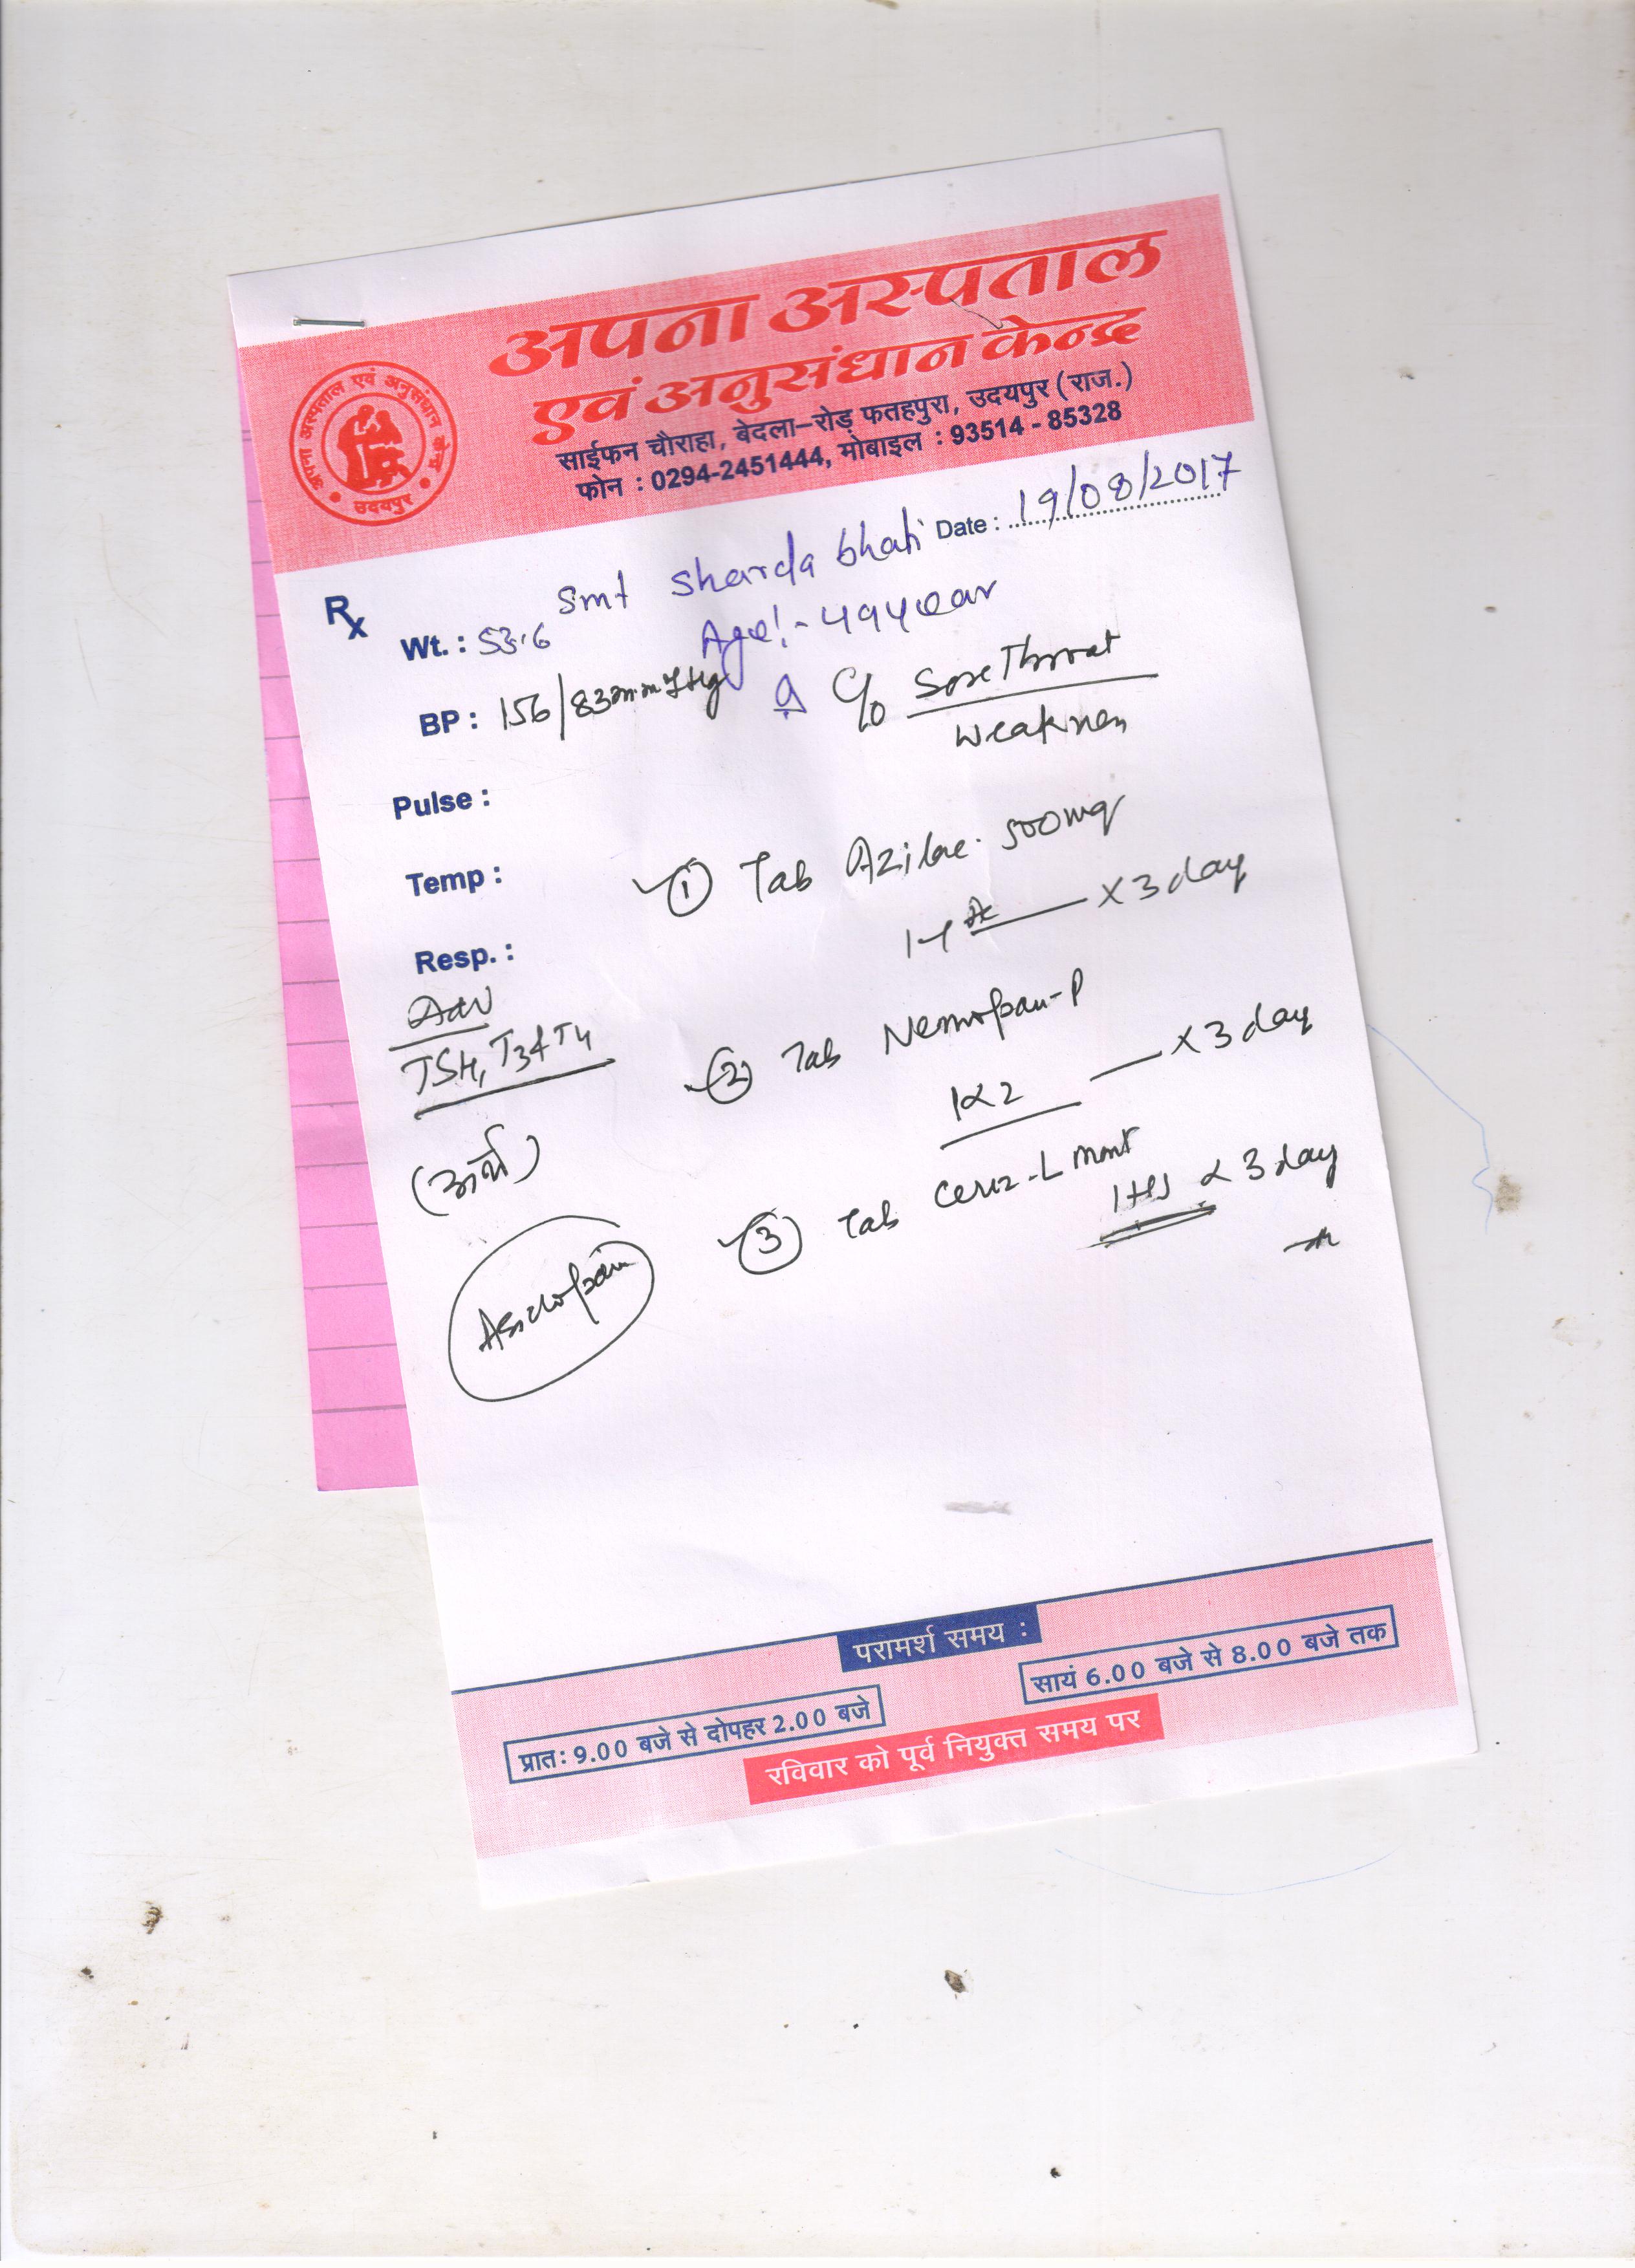 अपना अस्पताल
एवं अनुसंधान केन्द्र
साईफन चौराहा, बेदला-रोड़ फतहपुरा, उदयपुर (राज.)
फोन : 0294-2451444, मोबाइल : 93514 - 85328
अपना अस्पताल एवं अनुसंधान केन्द्र
उदयपुर
Date : 19/08/2017
Rx
Smt Sharda bhati
Wt. : 53.6
Age:- 49 year
BP : 156/83 mm of Hg
C/o Sore Throat
Weakness
Pulse :
① Tab 500mg
Temp :
X 3 day
Resp. :
Adv
TSH, T3 & T4
② Tab -P
1x2 X 3 day
③ Tab -L mont
1 HS x 3 day
परामर्श समय :
प्रातः 9.00 बजे से दोपहर 2.00 बजे
सायं 6.00 बजे से 8.00 बजे तक
रविवार को पूर्व नियुक्त समय पर